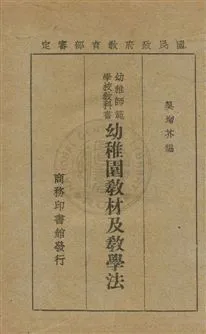 國民政府教育部審定
吳增芥編
幼稚師範
學校教科書
幼稚園教材及教學法
商務印書館發行